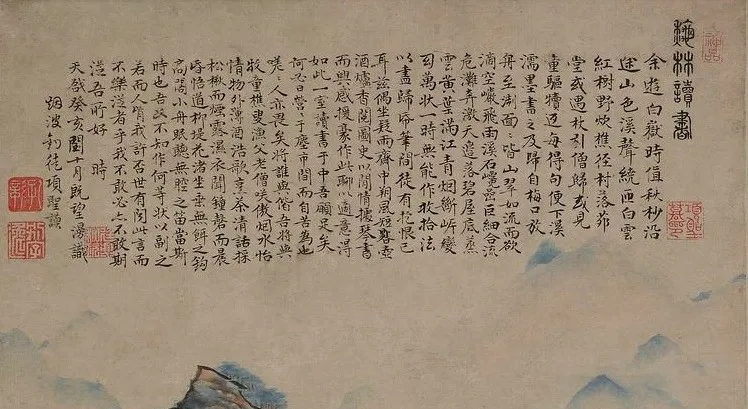 龝林讀書
余遊白嶽時值秋杪沿
途山色溪聲繞匝白雲
紅樹野炊樵徑村落茆
堂或遇杖引僧歸或見
童驅犢每得句便下溪
濡墨書之及歸自梅口放
舟至淛面面皆山翠如流而欲
滴空巖飛雨溪石巉巨細合流
危灘弄激天邊落碧屋底蒸
雲黃葉滿江青烟斷岸變
幻萬狀一時無能作收拾法
以盡歸筆間徒有抱恨已
耳茲偶坐疑雨齋中朔風短晷壺
酒爐香閱圖史以閒情攄琴書
而興感作此聊以適意得
如此一室讀書于中吾願足矣
何必日營營于塵市間而自苦為也
嗟嗟人亦畏矣將誰與偕吾將與
牧童樵叟漁父老僧咲傲烟水怡
情物外薄酒浩歌烹茶清話採
松楸而煙露濕衣聞鍾磬而晨
昏悟道柳堤花渚坐無餌之鈎
高閣小舟聽無腔之笛當斯
時也吾故不知作何等狀以副之
若而人肯我許否世有閱此言而
不樂從者乎我不敢必亦不敢期
從吾所好 時
天啟癸亥閏十月既望漫識
烟波釣徒項聖謨